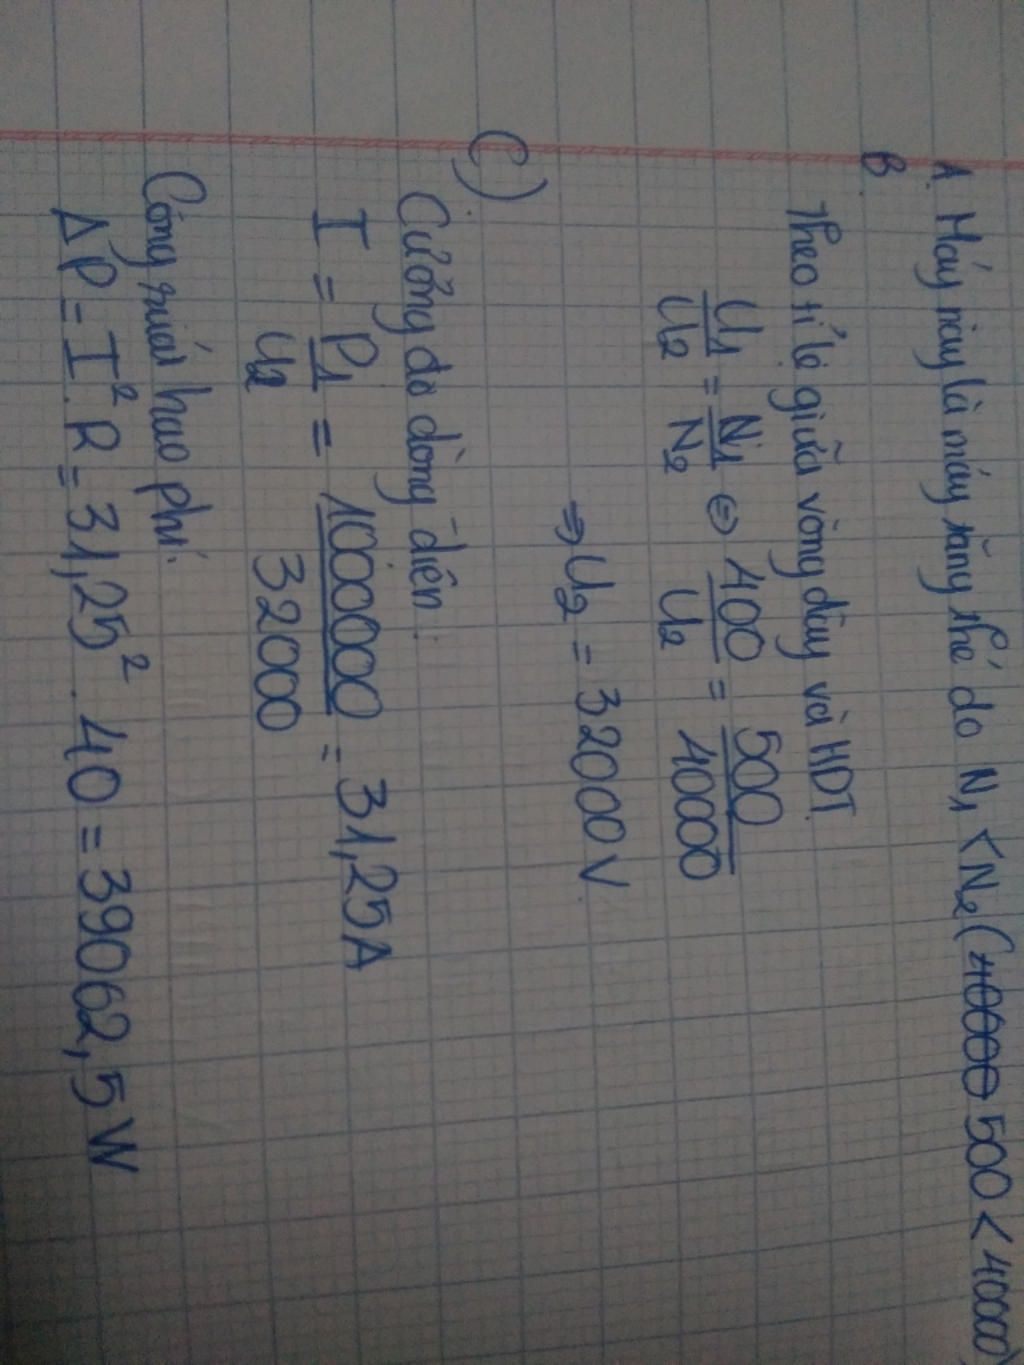 A. Máy này là máy tăng thế do N₁ < N₂ (40000 500 < 40000)
B.
Theo tỉ lệ giữa vòng dây và HĐT
U₁/U₂ = N₁/N₂ ⇔ 400/U₂ = 500/40000
⇒ U₂ = 32000 V
C)
Cường độ dòng điện:
I = P₁/U₂ = 1000000/32000 = 31,25A
Công suất hao phí:
ΔP = I².R = 31,25² . 40 = 39062,5 W